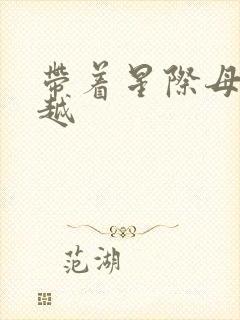 帶着星際母
越
范湖